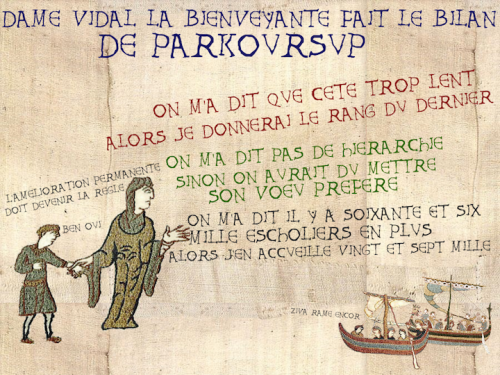 DAME VIDAL LA BIENVEYANTE FAIT LE BILAN
DE PARKOURSUP
ON M'A DIT QUE CETE TROP LENT
ALORS JE DONNERAI LE RANG DU DERNIER
ON M'A DIT PAS DE HIERARCHIE
SINON ON AURAIT DU METTRE
SON VOEU PREFERE
L'AMELIORATION PERMANENTE
DOIT DEVENIR LA REGLE
BEN OUI
ON M'A DIT IL Y A SOIXANTE ET SIX
MILLE ESCHOLIERS EN PLUS
ALORS J'EN ACCUEILLE VINGT ET SEPT MILLE
ZIVA RAME ENCOR